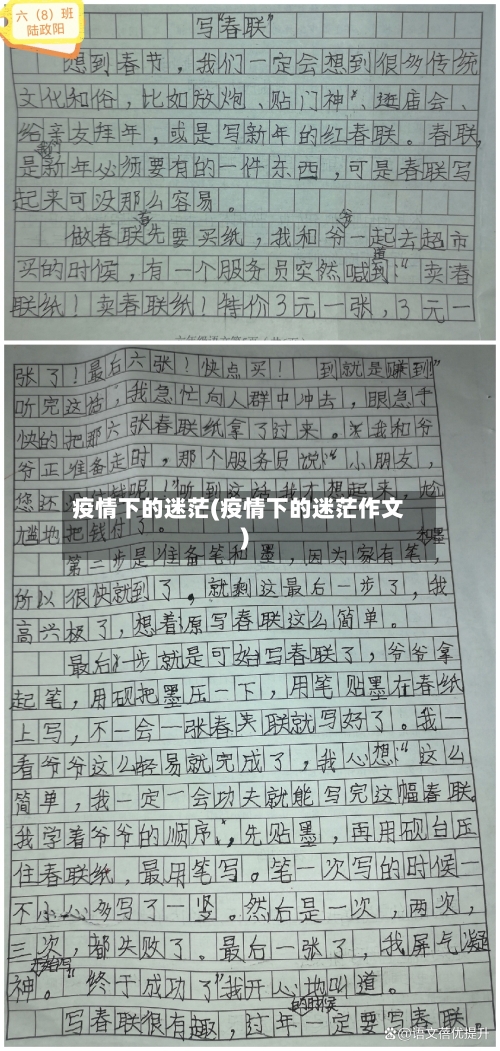 六（8）班
陆政阳
写“春联”
想到春节，我们一定会想到很多传统
文化和俗，比如放炮、贴门神、逛庙会、
给亲友拜年，或是写新年的红春联。春联，
是新年必须要有的一件东西，可是春联写
起来可没那么容易。
做春联先要买纸，我和爷一起去超市
买的时候，有一个服务员突然喊到：“卖春
联纸！卖春联纸！特价3元一张，3元一
张了！最后六张！快点买！ 到就是赚到”
听完这话，我急忙向人群中冲去，眼急手
快的把那六张春联纸拿了过来。我和爷
爷正准备走时，那个服务员说：“小朋友，
您还
疫情下的迷茫(疫情下的迷茫作文
)
尴地把钱付了。
第二步是准备笔和墨，因为家有笔，
所以很快就到了，就剩这最后一步了，我
高兴极了，想着原写春联这么简单。
最后一步就是可始写春联了，爷爷拿
起笔，用砚把墨压一下，用笔贴墨在春纸
上写，不一会一张春联就写好了。我一
看爷爷这么轻易就完成了，我心想：“这么
简单，我一定一会功夫就能写完这幅春联。
我学着爷爷的顺序，先贴墨，再用砚台压
住春联纸，最用笔写。笔一次写的时候一
不小心多写了一竖。然后是一次，两次，
三次，都失败了。最后一张了，我屏气凝
神。“终于成功了”我开心地叫道。
写春联很有趣，过年一定要写春联。
的时候
@语文蓓优提升